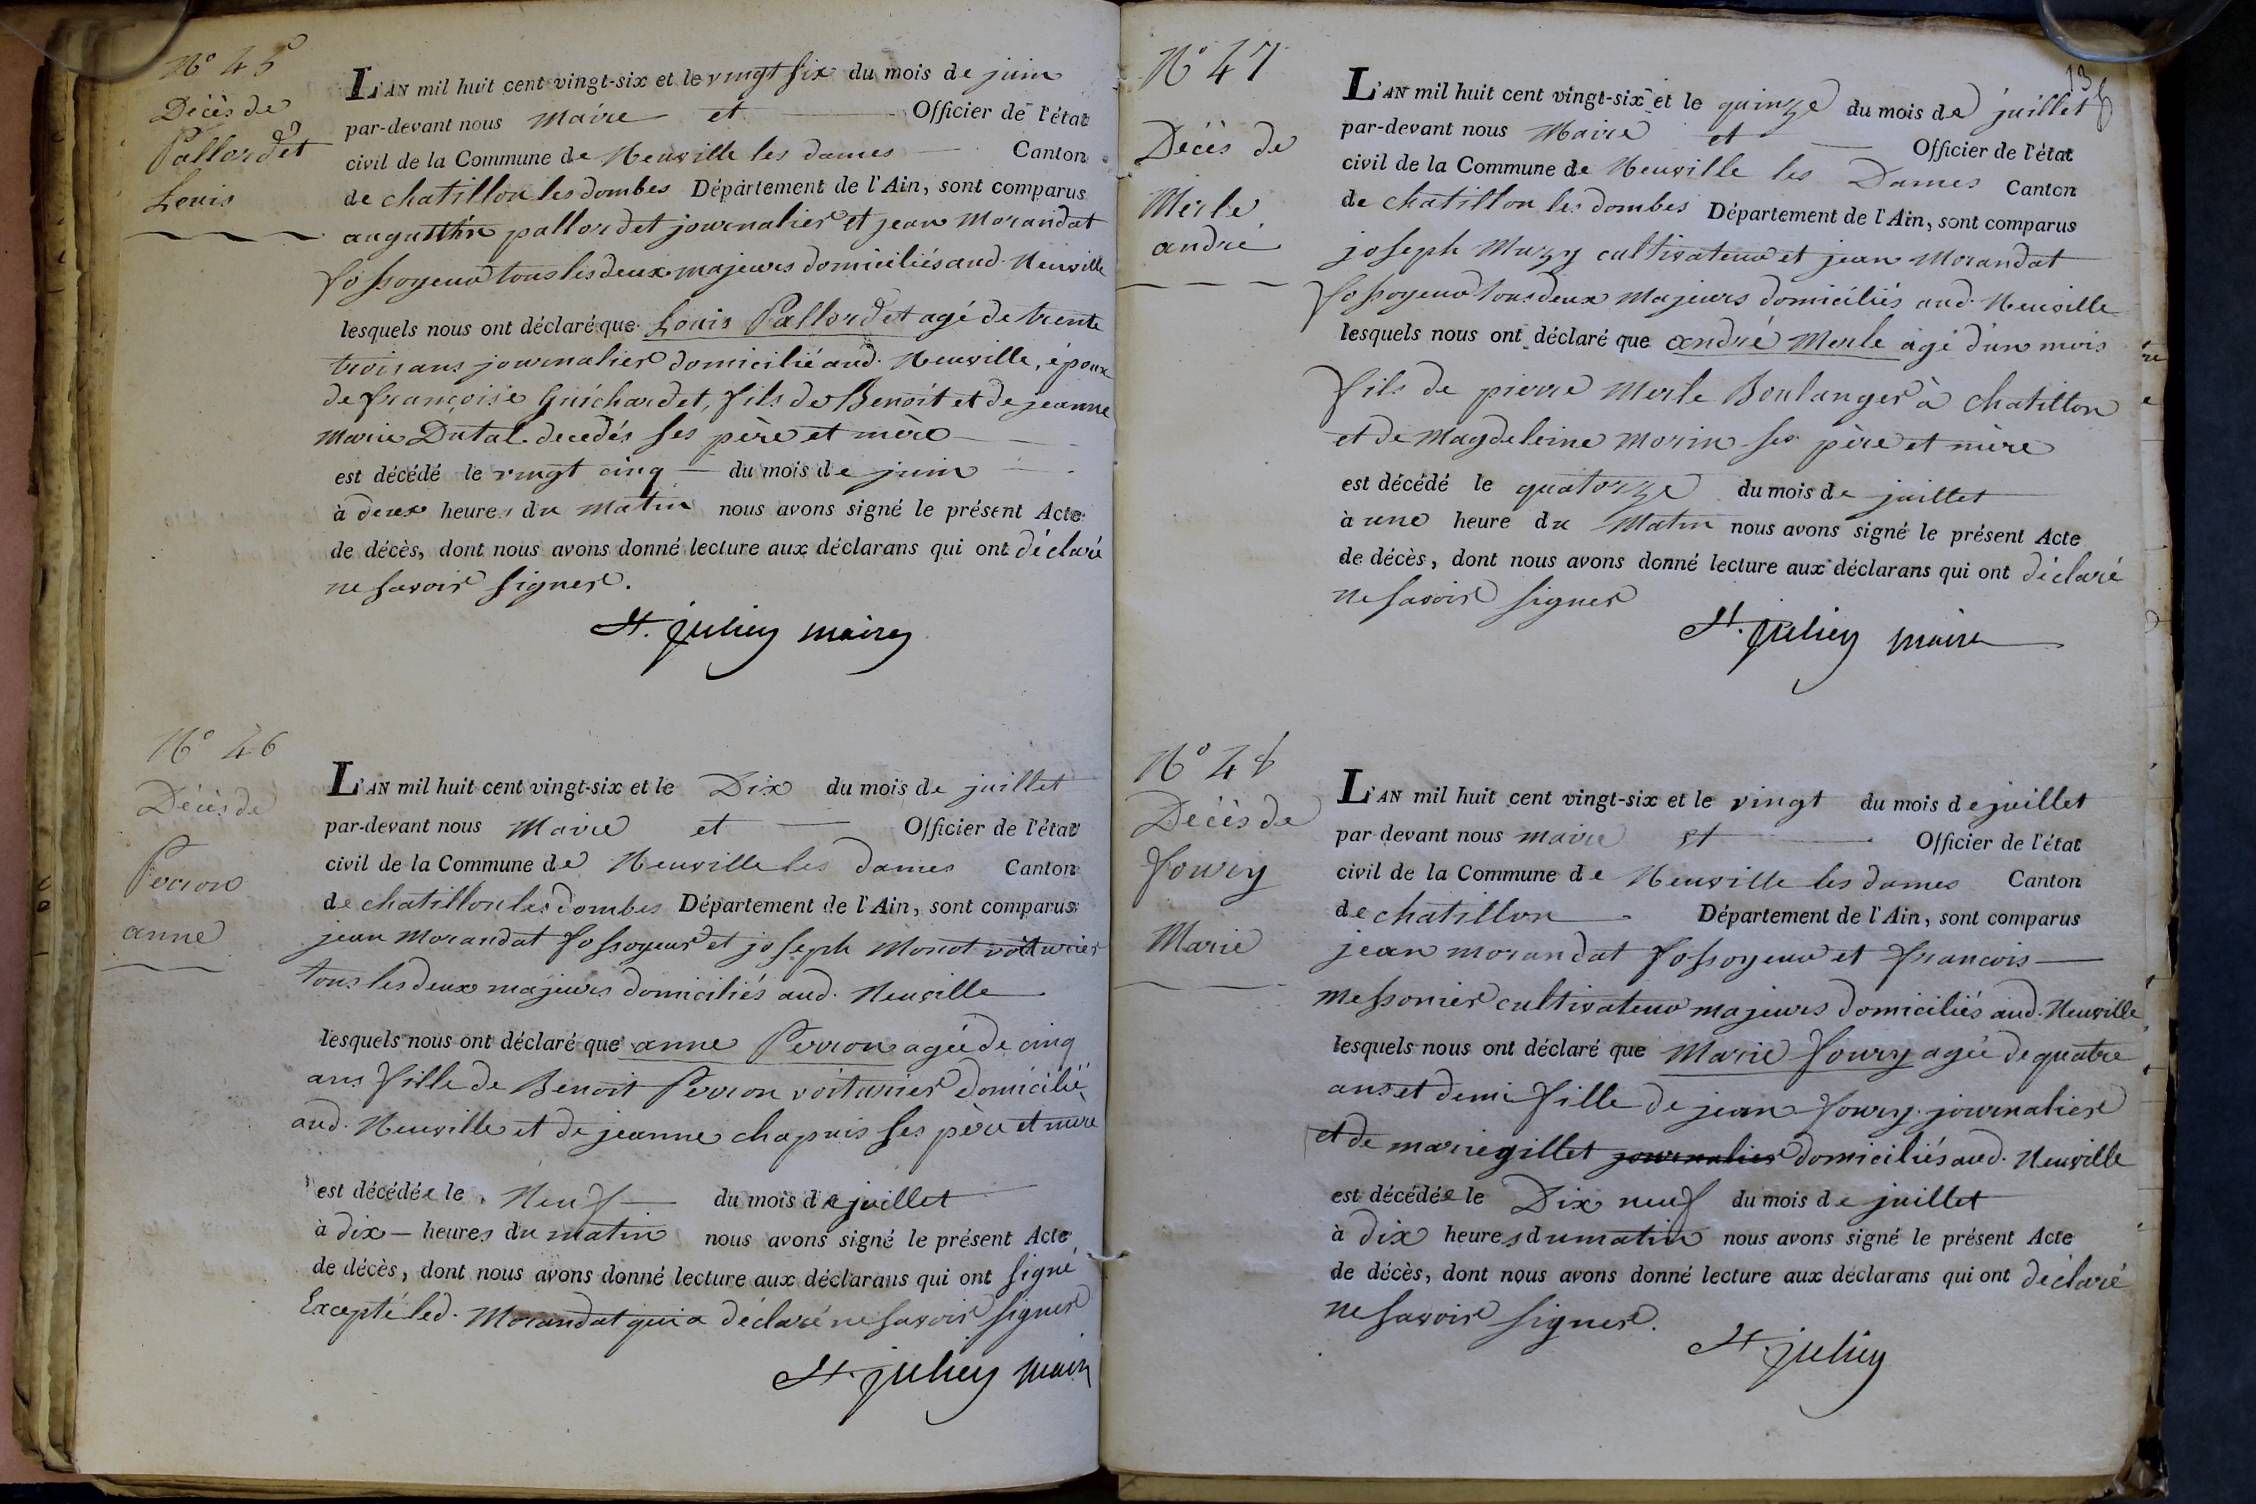 N° 45
Décès de
Pallordet
Louis
L'AN mil huit cent vingt-six et le vingt six du mois de juin
par-devant nous Maire et Officier de l'état
civil de la Commune de Neuville les dames Canton
de chatillon les dombes Département de l'Ain, sont comparus
augustin pallordet journalier et jean Morandat
fossoyeur tous les deux majeurs domiciliés aud. Neuville
lesquels nous ont déclaré que Louis Pallordet agé de trente
trois ans journalier domicilié aud. Neuville, époux
de françoise Guichardet, fils de Benoit et de jeanne
Marie Dutal decedés ses père et mère
est décédé le vingt cinq du mois de juin
à deux heures du matin nous avons signé le présent Acte
de décès, dont nous avons donné lecture aux déclarans qui ont déclaré
ne savoir signer.
St. julien maire
N° 46
Décès de
Perron
anne
L'AN mil huit cent vingt-six et le Dix du mois de juillet
par-devant nous Maire et Officier de l'état
civil de la Commune de Neuville les dames Canton
de chatillon les dombes Département de l'Ain, sont comparus
jean Morandat fossoyeur et joseph Monot voiturier
tous les deux majeurs domiciliés aud. Neuville
lesquels nous ont déclaré que anne Perron agée de cinq
ans fille de Benoit Perron voiturier domicilié
aud. Neuville et de jeanne chapuis ses père et mere
est décédée le Neuf du mois de juillet
à dix heures du matin nous avons signé le présent Acte
de décès, dont nous avons donné lecture aux déclarans qui ont signé
Excepté led. Morandat qui a déclaré ne savoir signer
St. julien maire
13
N° 47
Décès de
Merle
andré
L'AN mil huit cent vingt-six et le quinze du mois de juillet
par-devant nous Maire et Officier de l'état
civil de la Commune de Neuville les Dames Canton
de chatillon les dombes Département de l'Ain, sont comparus
joseph Muzy cultivateur et jean Morandat
fossoyeur tous deux Majeurs domiciliés aud. Neuville
lesquels nous ont déclaré que andré Merle agé d'un mois
fils de pierre Merle Boulanger à chatillon
et de Magdeleine Morin ses père et mère
est décédé le quatorze du mois de juillet
à une heure du Matin nous avons signé le présent Acte
de décès, dont nous avons donné lecture aux déclarans qui ont déclaré
ne savoir signer
St. julien maire
N° 48
Décès de
Foury
Marie
L'AN mil huit cent vingt-six et le vingt du mois de juillet
par devant nous maire et Officier de l'état
civil de la Commune de Neuville les dames Canton
de chatillon Département de l'Ain, sont comparus
jean morandat fossoyeur et francois
Messonier cultivateur majeurs domiciliés aud. Neuville
lesquels nous ont déclaré que Marie foury agée de quatre
ans et demi fille de jean foury journalier
et de marie gillet journalier domiciliés aud. Neuville
est décédée le Dix neuf du mois de juillet
à dix heures du matin nous avons signé le présent Acte
de décès, dont nous avons donné lecture aux déclarans qui ont déclaré
ne savoir signer.
St. julien